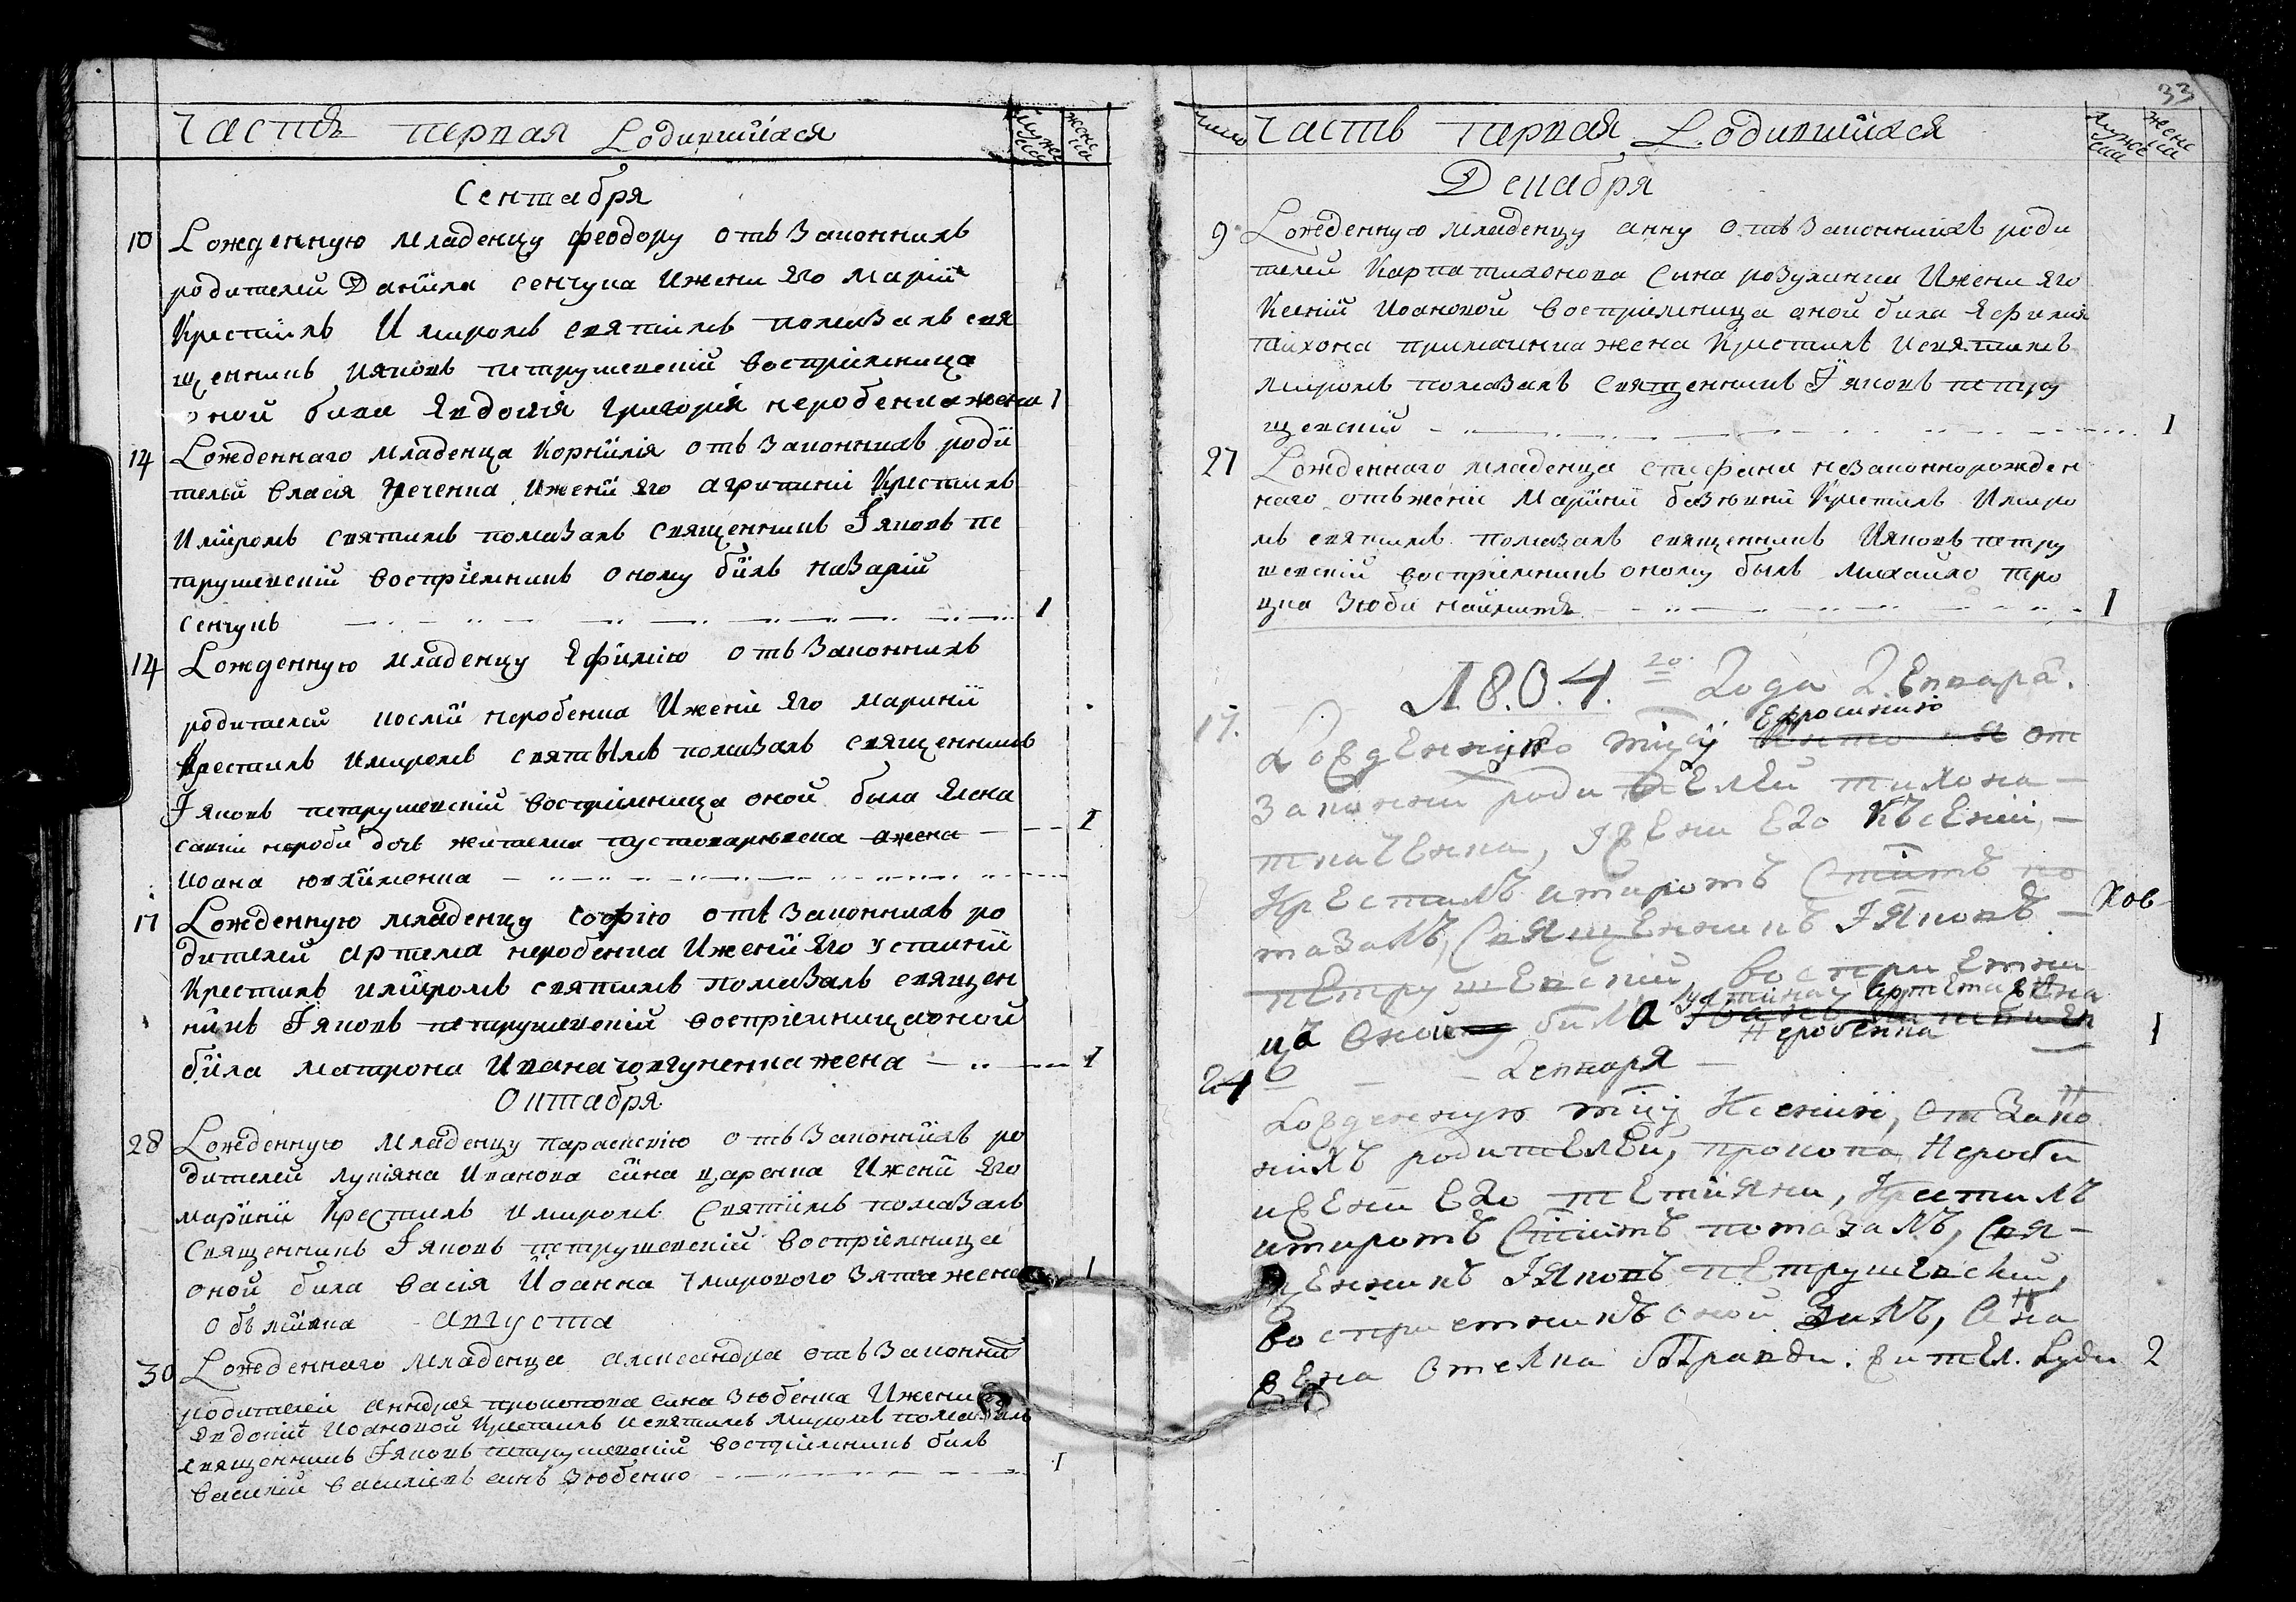 Часть первая Родившїяся
мужеска
женска
Сентабря
10 Рожденную младенцу Феодору отъ законнихъ
родителей Данїила Сенчука и жени его Марїи
крестилъ и миромъ святимъ помазалъ свя
щенникъ Іяковъ Петрушевскїй восприемница
оной била Явдокїя Григорїя Неробенка жена 1
14 Рожденнаго младенца Корнилїя отъ законнихъ роди
телей Власїя Греченка и жени его Агрипини крестилъ
и миромъ святимъ помазалъ священникъ Іяковъ Пе
трушевскїй восприемникъ оному билъ Назарїй
Сенчукъ 1
14 Рожденную младенцу Яфимїю отъ законнихъ
родителей Иосии Неробенка и женї его Маринїи
крестилъ и миромъ святымъ помазалъ священникъ
Іяковъ Петрушевскїй восприемница оной била Ялена
дочь жителки жена 1
Иоана
17 Рожденную младенцу Софїю отъ законнихъ ро
дителей Артема Неробенка и женї его Устинїи
крестилъ и миромъ святимъ помазалъ священ
никъ Іяковъ Петрушевскїй восприемница оной
била Матрона Ивана жена 1
Октабря
28 Рожденную младенцу Параскевїю отъ законнихъ ро
дителей Лукїяна Иванова сина Царенка и женї его
Маринїи крестилъ и миромъ святимъ помазалъ
священникъ Іяковъ Петрушевскїй восприемница
оной била Васїя Иоанна зята жена 1
Августа
30 Рожденнаго младенца Александра отъ законнихъ
родителей Андрея Прокопова сина Зюбенка и жени его
Явдокїи Иоановой крестилъ и святимъ миромъ помазалъ
священникъ Іяковъ Петрушевскїй восприемникъ билъ
Василїй Василїевъ синъ Зюбенко 1
33
число
Часть первая Родившїяся
мужеска
женска
Декабря
9 Рожденную младенцу Анну отъ законнихъ роди
телей Карпа Тихонова сина и жени его
Ксенїи Иоановой восприемница оной била Яфимия
Тихона жена крестилъ и святимъ
миромъ помазалъ священникъ Іяковъ Петру
шевскїй 1
27 Рожденнаго младенца Стефана незаконнорожден
наго отъ женї Маринїи крестилъ и миро
мъ святимъ помазалъ священникъ Іяковъ Петру
шевскїй восприемникъ оному былъ Михайло
Зюби наймитъ 1
1804. го года Генваря.
17. Рожденную мцу Ефросинию от
законни родителей Тихона
Ткаченка, жени его Ксенїи,
крестилъ и миромъ стимъ по
мазалъ, священникъ Іяковъ
Петрушевскїй восприемни
ца оной била Устина Артема жена
Неробенка 1
Генваря
24 Рожденную мцу Ксенїю, от зако
нихъ родителей, Прокопа Нероби
и жени его Тетияни, крестилъ
и миромъ стимъ помазалъ, свя
щенникъ Іяковъ Петрушевскїй,
восприемникъ оной билъ, Анна
жена Омелка Правди. жител. 2